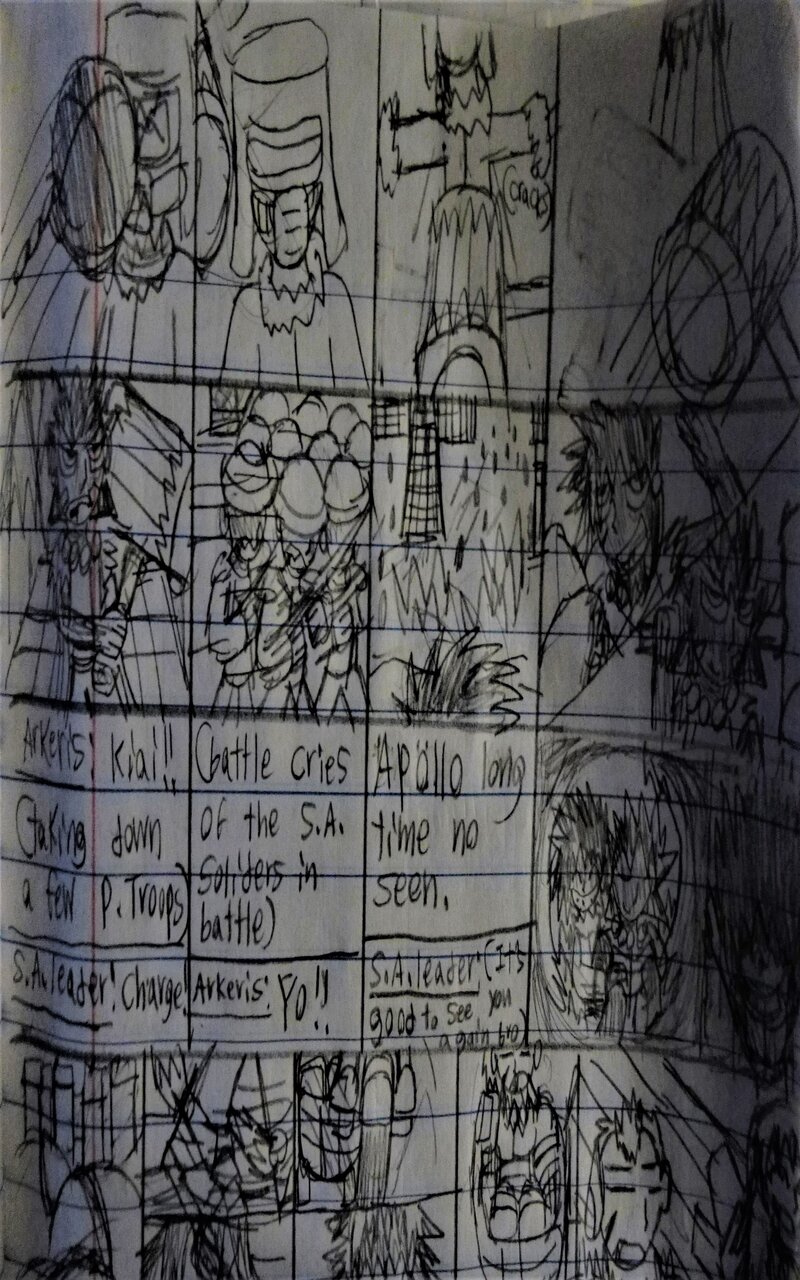 (crack)
Arkeris: Kiai!!
(taking down
a few P. Troops)
S.A. leader: Charge!
(battle cries
of the S.A.
Soliders in
battle)
Arkeris: Yo!!
Apollo long
time no
seen.
S.A. leader: (It's
good to see you
again bro)